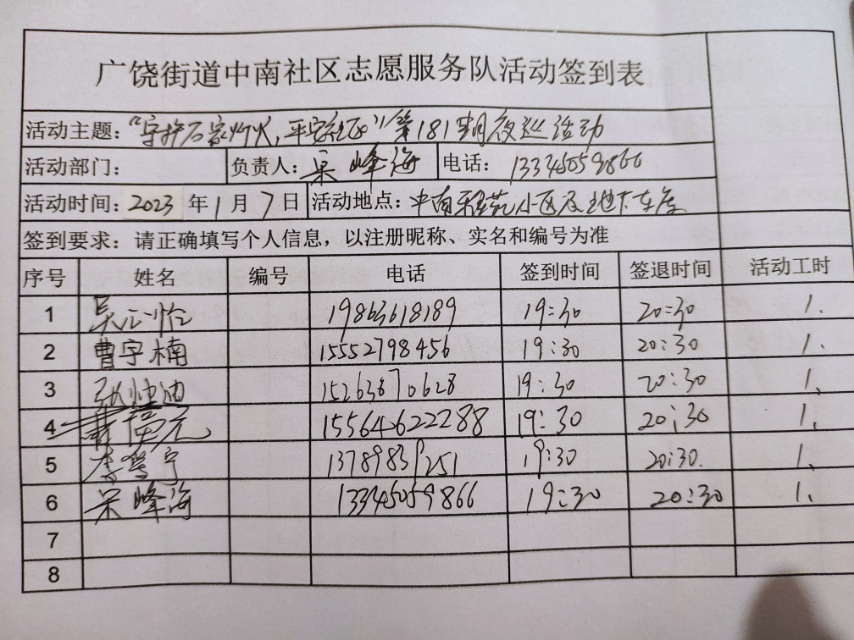 广饶街道中南社区志愿服务队活动签到表
活动主题:“守护万家灯火,平安社区”第181期夜巡活动
活动部门: 负责人:吴峰海 电话: 13345059866
活动时间: 2023 年 1 月 7 日 活动地点: 中南 苑小区及地下车库
签到要求:请正确填写个人信息,以注册昵称、实名和编号为准
序号 姓名 编号 电话 签到时间 签退时间 活动工时
1 吴 19863618189 19:30 20:30 1.
2 曹宇楠 15552798456 19:30 20:30 1.
3 张 15263870628 19:30 20:30 1、
4 15564622288 19:30 20:30 1、
5 李 宁 13789839251 19:30 20:30. 1、
6 吴峰海 13345059866 19:30 20:30 1、
7
8